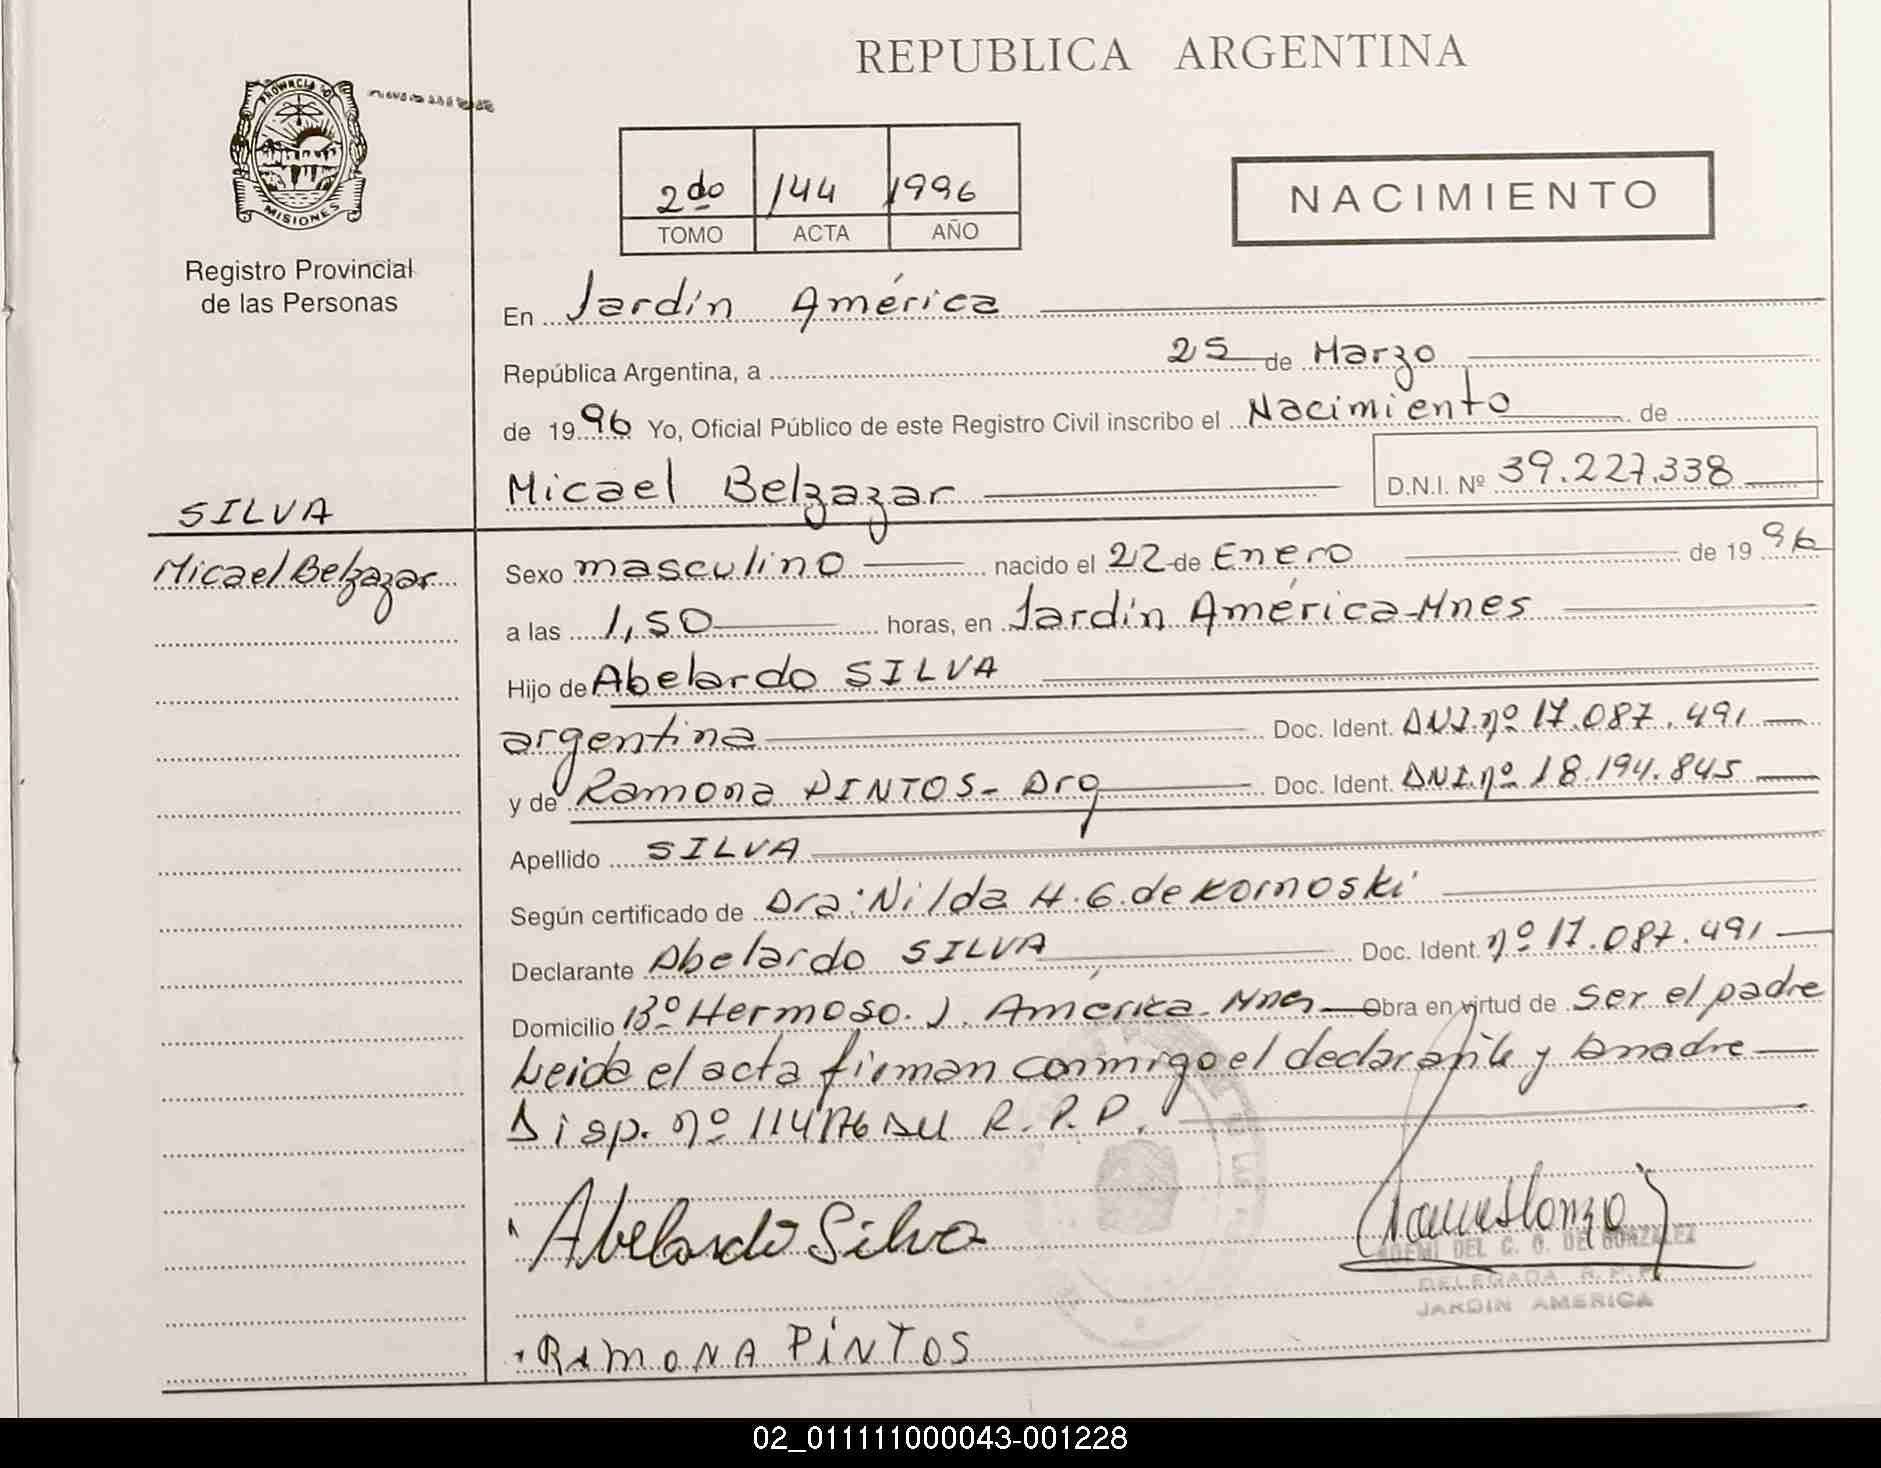 REPUBLICA ARGENTINA
PROVINCIA DE
MISIONES
Registro Provincial
de las Personas
2do 144 1996
TOMO ACTA AÑO
NACIMIENTO
En Jardín América
República Argentina, a 25 de Marzo
de 1996 Yo, Oficial Público de este Registro Civil inscribo el Nacimiento de
Micael Belzazar D.N.I. Nº 39.227.338
SILVA
Micael Belzazar
Sexo masculino nacido el 22 de Enero de 1996
a las 1,50 horas, en Jardín América-Mnes
Hijo de Abelardo SILVA
argentina Doc. Ident. DNI.nº 17.087.491
y de Ramona PINTOS- Arg Doc. Ident. DNI.nº 18.194.845
Apellido SILVA
Según certificado de Dra: Nilda H.G. de Kornoski
Declarante Abelardo SILVA Doc. Ident. nº 17.087.491
Domicilio Bº Hermoso. J. América-Mnes Obra en virtud de ser el padre
Leida el acta firman conmigo el declarante y la madre
Disp. nº 114/76 del R.P.P.
Abelardo Silva
DEL C. O. DE GONZALEZ
DELEGADA R.P.P.
JARDIN AMERICA
RAMONA PINTOS
02_011111000043-001228